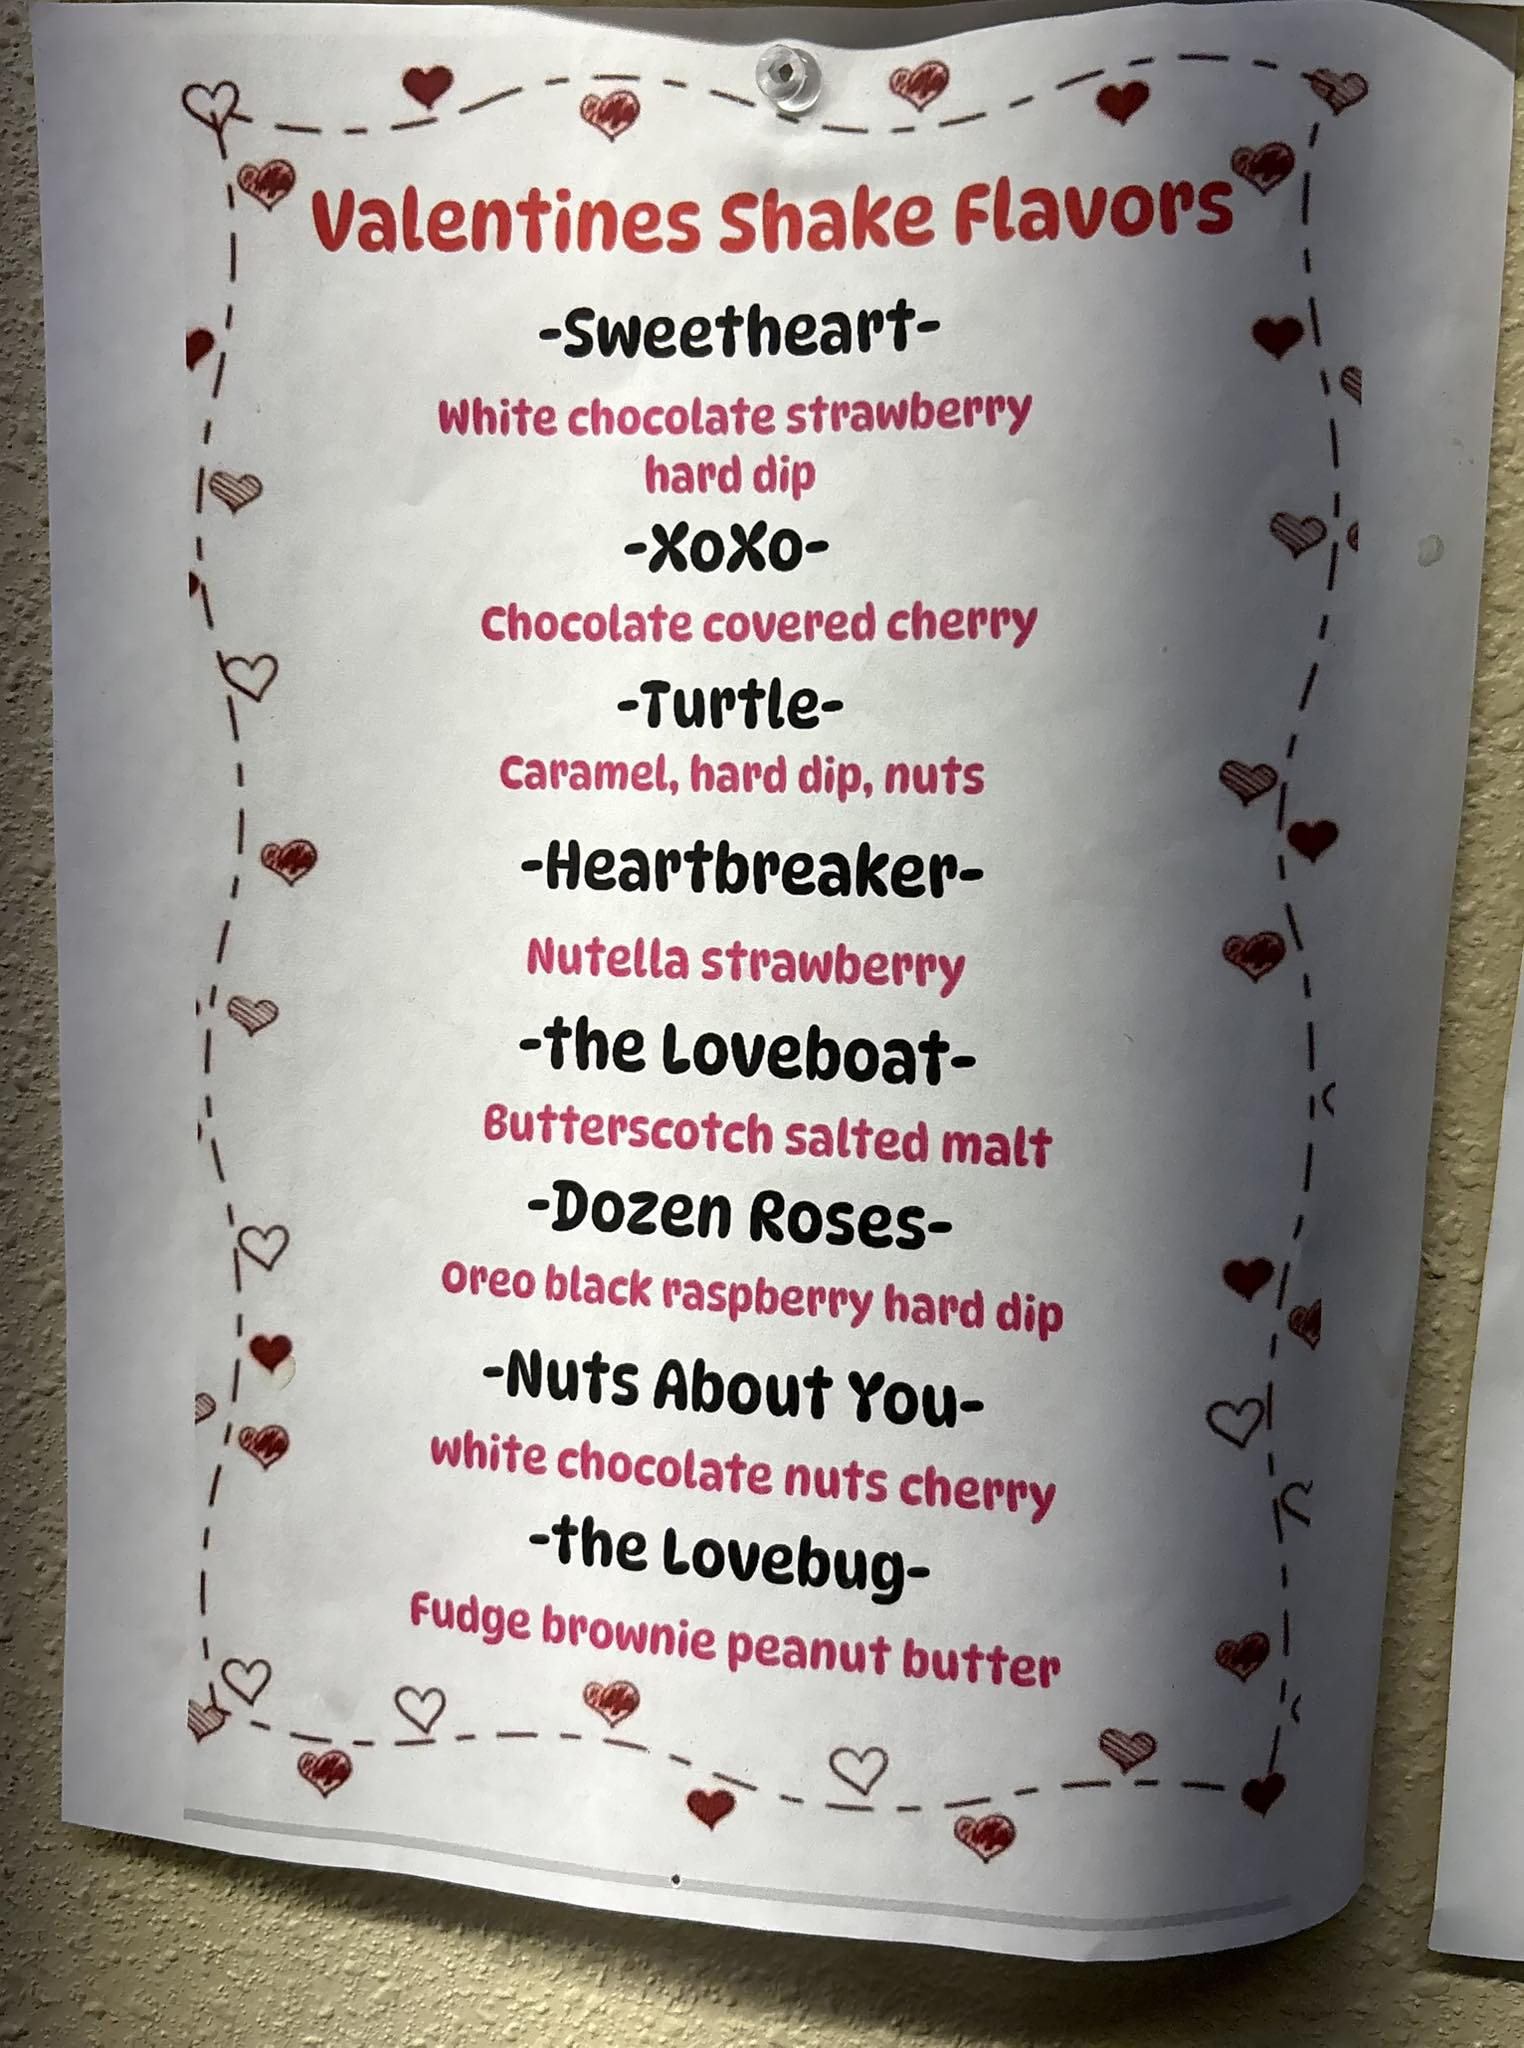 Valentines Shake Flavors
-Sweetheart-
White chocolate strawberry
hard dip
-XoXo-
Chocolate covered cherry
-Turtle-
Caramel, hard dip, nuts
-Heartbreaker-
Nutella strawberry
-the Loveboat-
Butterscotch salted malt
-Dozen Roses-
Oreo black raspberry hard dip
-Nuts About You-
white chocolate nuts cherry
-the Lovebug-
Fudge brownie peanut butter